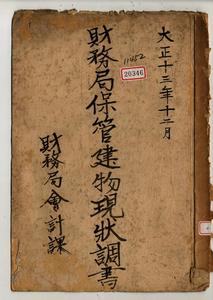 大正十三年十二月
11452
20346
財務局保管建物現狀調書
財務局會計課